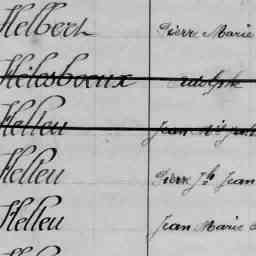 Helbert Pierr Marie
Hélesboeux Adolphe
Helleu Jean
Helleu Pierr Jh Jean
Helleu Jean Marie